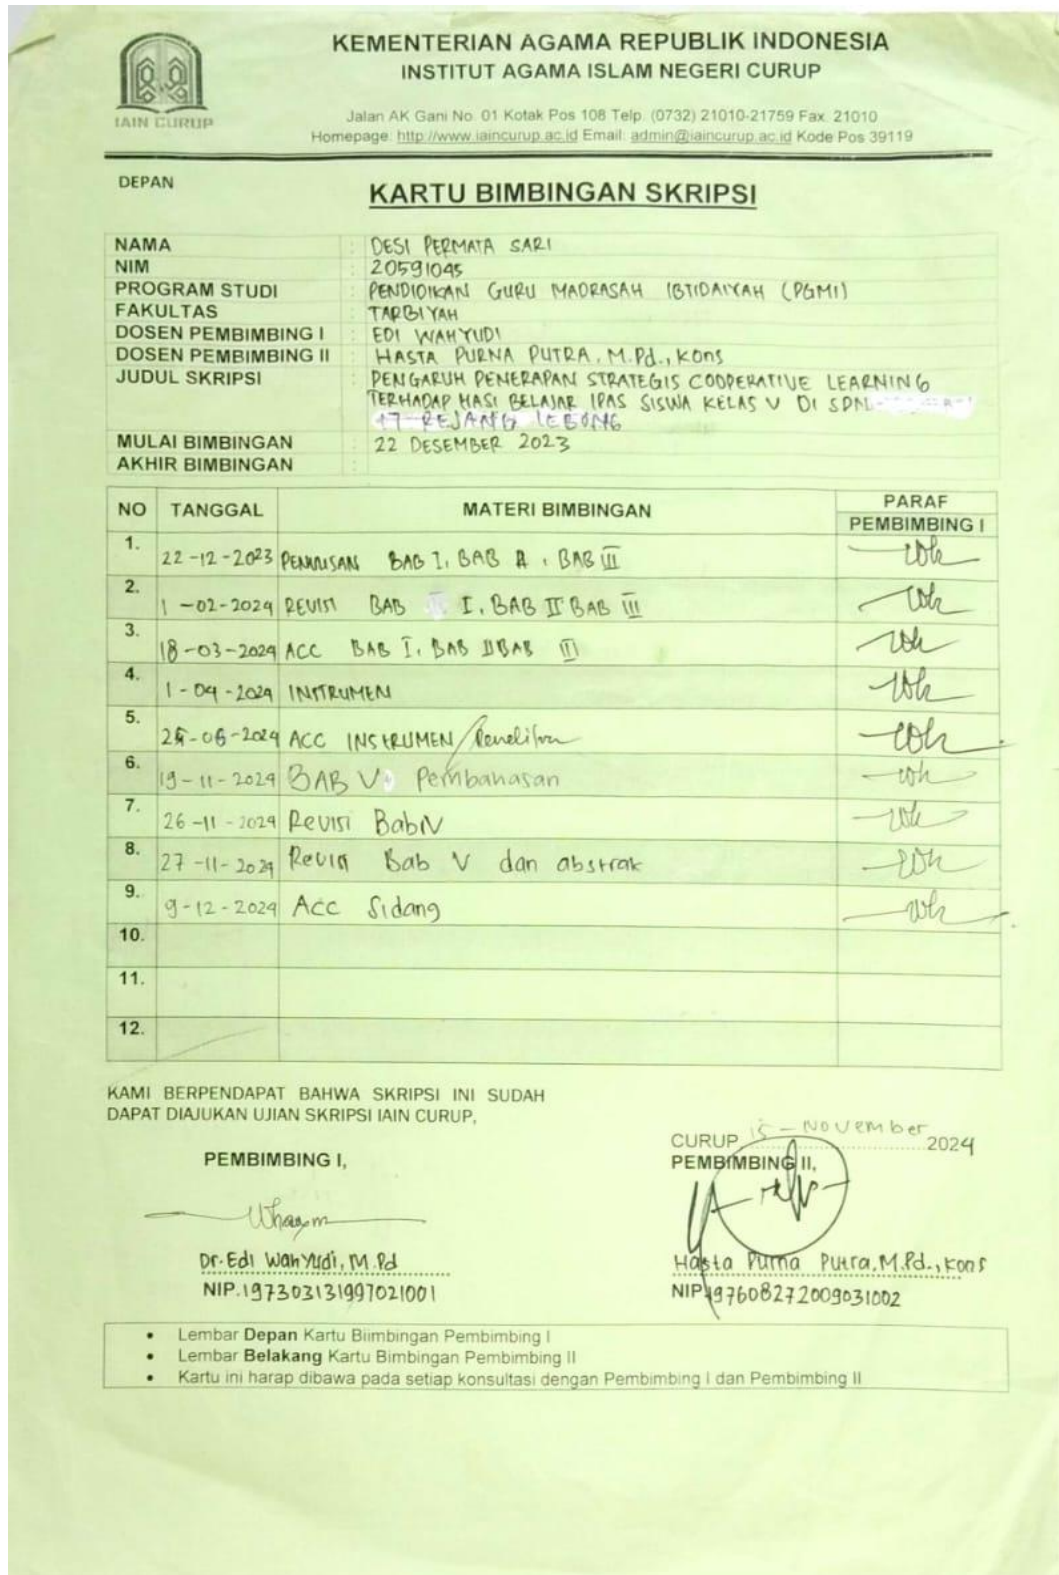 KEMENTERIAN AGAMA REPUBLIK INDONESIA
INSTITUT AGAMA ISLAM NEGERI CURUP
IAIN CURUP
Jalan AK Gani No. 01 Kotak Pos 108 Telp. (0732) 21010-21759 Fax. 21010
Homepage: http://www.iaincurup.ac.id Email: admin@iaincurup.ac.id Kode Pos 39119
DEPAN
KARTU BIMBINGAN SKRIPSI
NAMA : DESI PERMATA SARI
NIM : 20591045
PROGRAM STUDI : PENDIDIKAN GURU MADRASAH IBTIDAIYAH (PGMI)
FAKULTAS : TARBIYAH
DOSEN PEMBIMBING I : EDI WAHYUDI
DOSEN PEMBIMBING II : HASTA PURNA PUTRA, M.Pd., Kons
JUDUL SKRIPSI : PENGARUH PENERAPAN STRATEGIS COOPERATIVE LEARNING
TERHADAP HASI BELAJAR IPAS SISWA KELAS V DI
17 REJANG LEBONG
MULAI BIMBINGAN : 22 DESEMBER 2023
AKHIR BIMBINGAN :
NO TANGGAL MATERI BIMBINGAN PARAF
PEMBIMBING I
1. 22-12-2023 PENULISAN BAB I, BAB II, BAB III
2. 1-02-2024 REVISI BAB I, BAB II BAB III
3. 18-03-2024 ACC BAB I, BAB II BAB III
4. 1-04-2024 INSTRUMEN
5. 25-06-2024 ACC INSTRUMEN/Penelitian
6. 19-11-2024 BAB V Pembahasan
7. 26-11-2024 Revisi Bab IV
8. 27-11-2024 Revisi Bab V dan abstrak
9. 9-12-2024 Acc Sidang
10.
11.
12.
KAMI BERPENDAPAT BAHWA SKRIPSI INI SUDAH
DAPAT DIAJUKAN UJIAN SKRIPSI IAIN CURUP,
CURUP 15 - November 2024
PEMBIMBING I,
PEMBIMBING II,
Dr. Edi Wahyudi, M.Pd
NIP.197303131997021001
Hasta Purna Putra, M.Pd., Kons
NIP.197608272009031002
• Lembar Depan Kartu Biimbingan Pembimbing I
• Lembar Belakang Kartu Bimbingan Pembimbing II
• Kartu ini harap dibawa pada setiap konsultasi dengan Pembimbing I dan Pembimbing II